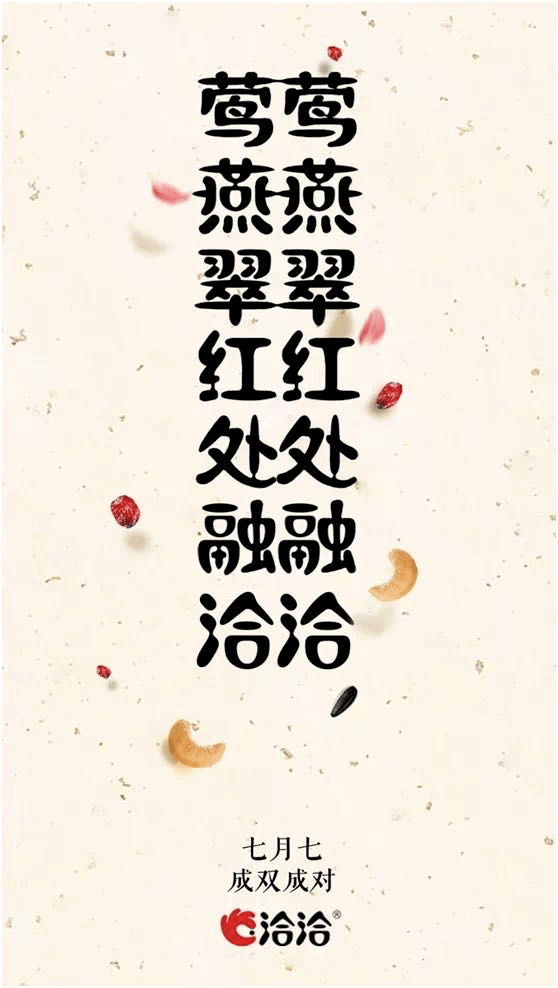 莺莺
燕燕
翠翠
红红
处处
融融
洽洽
七月七
成双成对
洽洽®